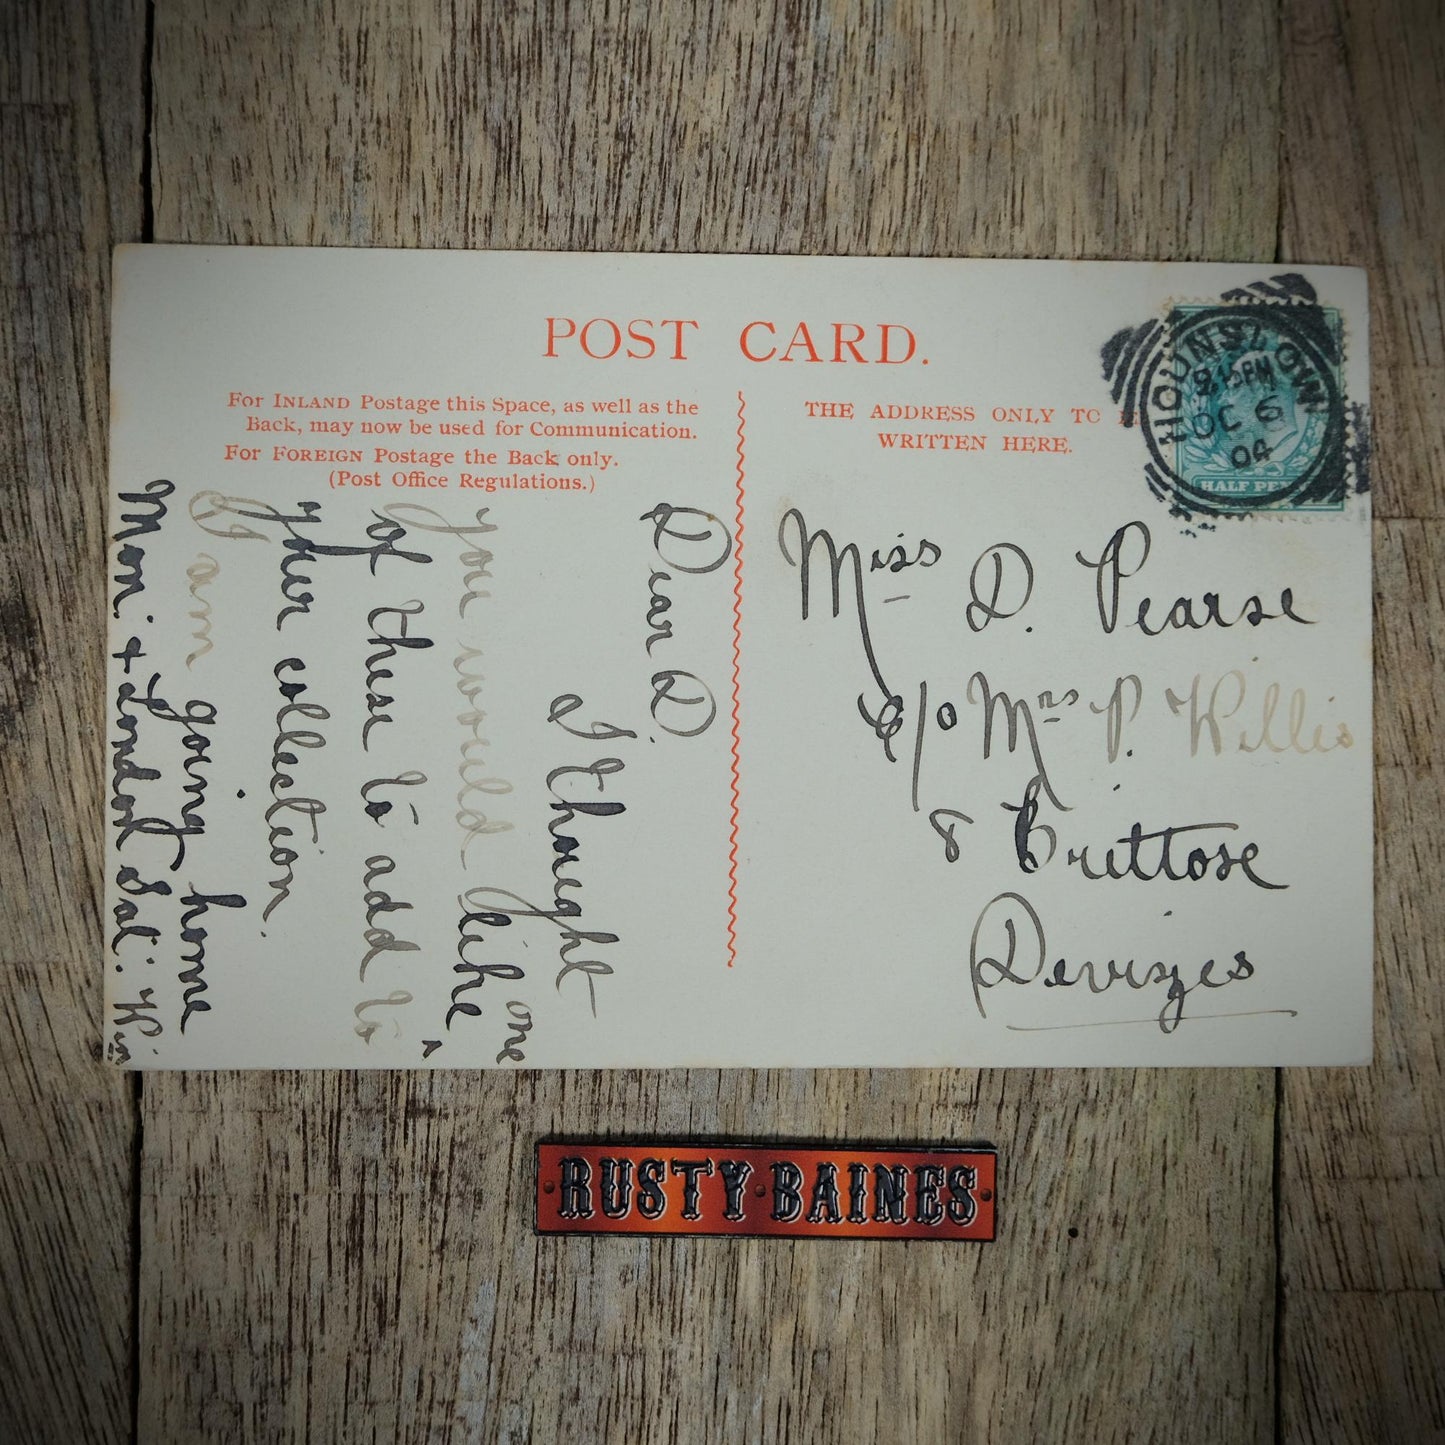 POST CARD.
For INLAND Postage this Space, as well as the
Back, may now be used for Communication.
For FOREIGN Postage the Back only.
(Post Office Regulations.)
THE ADDRESS ONLY TO
WRITTEN HERE.
HOUNSLOW
9.15PM
OC 6
04
HALF PEN
Dear D.
I thought
you would like one
of these to add to
your collection.
I am going home
Mon: & London Sat: Win
Miss D. Pearse
c/o Mrs P. Willis
8 Brittose
Devizes
RUSTY BAINES